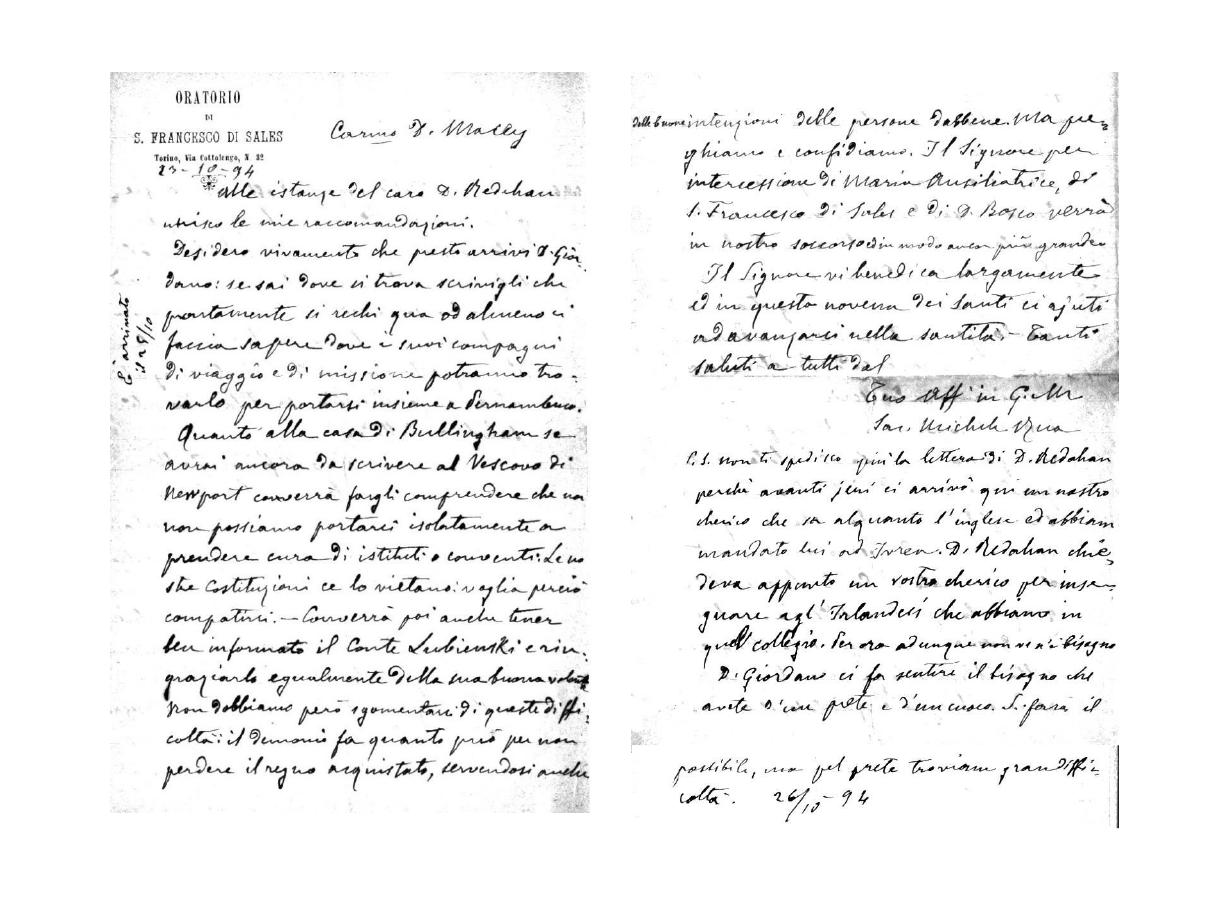 ORATORIO
DI
S. FRANCESCO DI SALES
Torino, Via Cottolengo, N 32
23-10-94
Carmo D. Macey
Alle istanze del caro D. Redahan
unisco le mie raccomandazioni.
Desidero vivamente che presto arrivi D. Gior-
dano: se sai dove si trova scrivigli che
prontamente si rechi qua od almeno ci
faccia sapere dove i suoi compagni
di viaggio e di missione potranno tro-
varlo per portarsi insieme a Pernambuco.
È arrivato
il 25/10
Quanto alla casa di Bullingham se
avrai ancora da scrivere al Vescovo di
Newport converrà fargli comprendere che noi
non possiamo portarci isolatamente a
prendere cura di istituti o conventi. Le no
stre Costituzioni ce lo vietano: voglia perciò
compatirci. - Converrà poi anche tener
ben informato il Conte Lubienski e rin-
graziarlo egualmente della sua buona volontà
Non dobbiamo però sgomentarci di queste diffi-
coltà: il demonio fa quanto può per non
perdere il regno acquistato, servendosi anche
delle buone intenzioni delle persone dabbene. Ma pre-
ghiamo e confidiamo. Il Signore per
intercessione di Maria Ausiliatrice, di
S. Francesco di Sales e di D. Bosco verrà
in nostro soccorso ed in modo ancor più grande
Il Signore vi benedica largamente
ed in questa novena dei Santi ci ajuti
ad avanzarci nella santità. - Tanti
saluti a tutti dal
Tuo Aff in G. e M
Sac. Michele Rua
P.S. non ti spedisco più la lettera di D. Redahan
perchè avanti jeri ci arrivò qui un nostro
cherico che sa alquanto l'inglese ed abbiam
mandato lui ad Ivrea. D. Redahan chie-
deva appunto un vostro cherico per inse-
gnare agl'Irlandesi che abbiamo in
quel collegio. Per ora adunque non ve n'è bisogno
D. Giordano ci fa sentire il bisogno che
avete d'un prete e d'un cuoco. Si farà il
possibile, ma pel prete troviam gran diffi-
coltà. 26/10-94